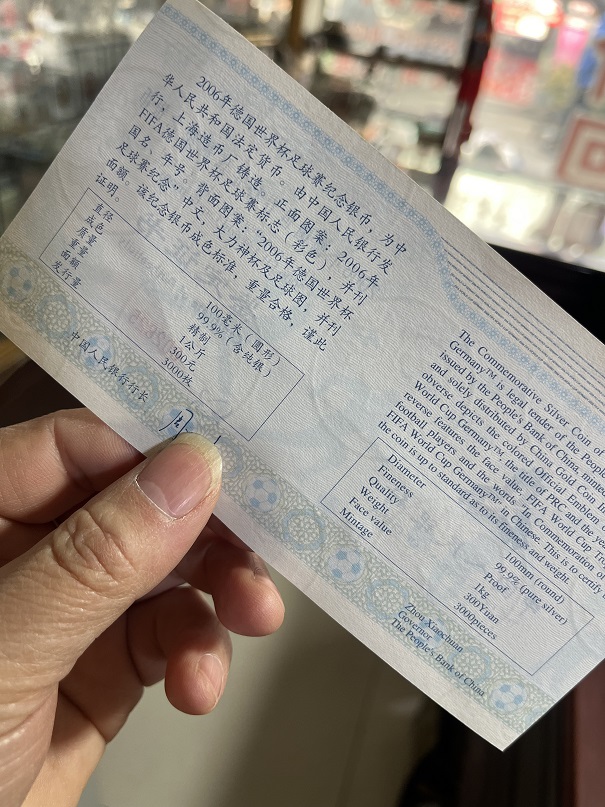 2006年德国世界杯足球赛纪念银币，为中
华人民共和国法定货币。由中国人民银行发
行，上海造币厂铸造。正面图案：2006年
FIFA德国世界杯足球赛标志（彩色），并刊
国名、年号。背面图案：“2006年德国世界杯
足球赛纪念”中文，大力神杯及足球图，并刊
面额。该纪念银币成色标准，重量合格，谨此
证明。
直径 100毫米（圆形）
成色 99.9%（含纯银）
质量 精制
重量 1公斤
面额 300元
发行量 3000枚
中国人民银行行长
The Commemorative Silver Coin of
Germany™ is legal tender of the People
issued by the People's Bank of China, minted
and solely distributed by China Gold Coin
obverse depicts the colored Official Emblem
World Cup Germany™, the title of PRC and the
reverse features the face value, FIFA World Cup
football players and the words "In Commemoration of
FIFA World Cup Germany" in Chinese. This is to certify
the coin is up to standard as to its fineness and weight.
Diameter 100mm (round)
Fineness 99.9% (pure silver)
Quality Proof
Weight 1kg
Face value 300Yuan
Mintage 3000pieces
Zhou Xiaochuan
Governor
The People's Bank of China